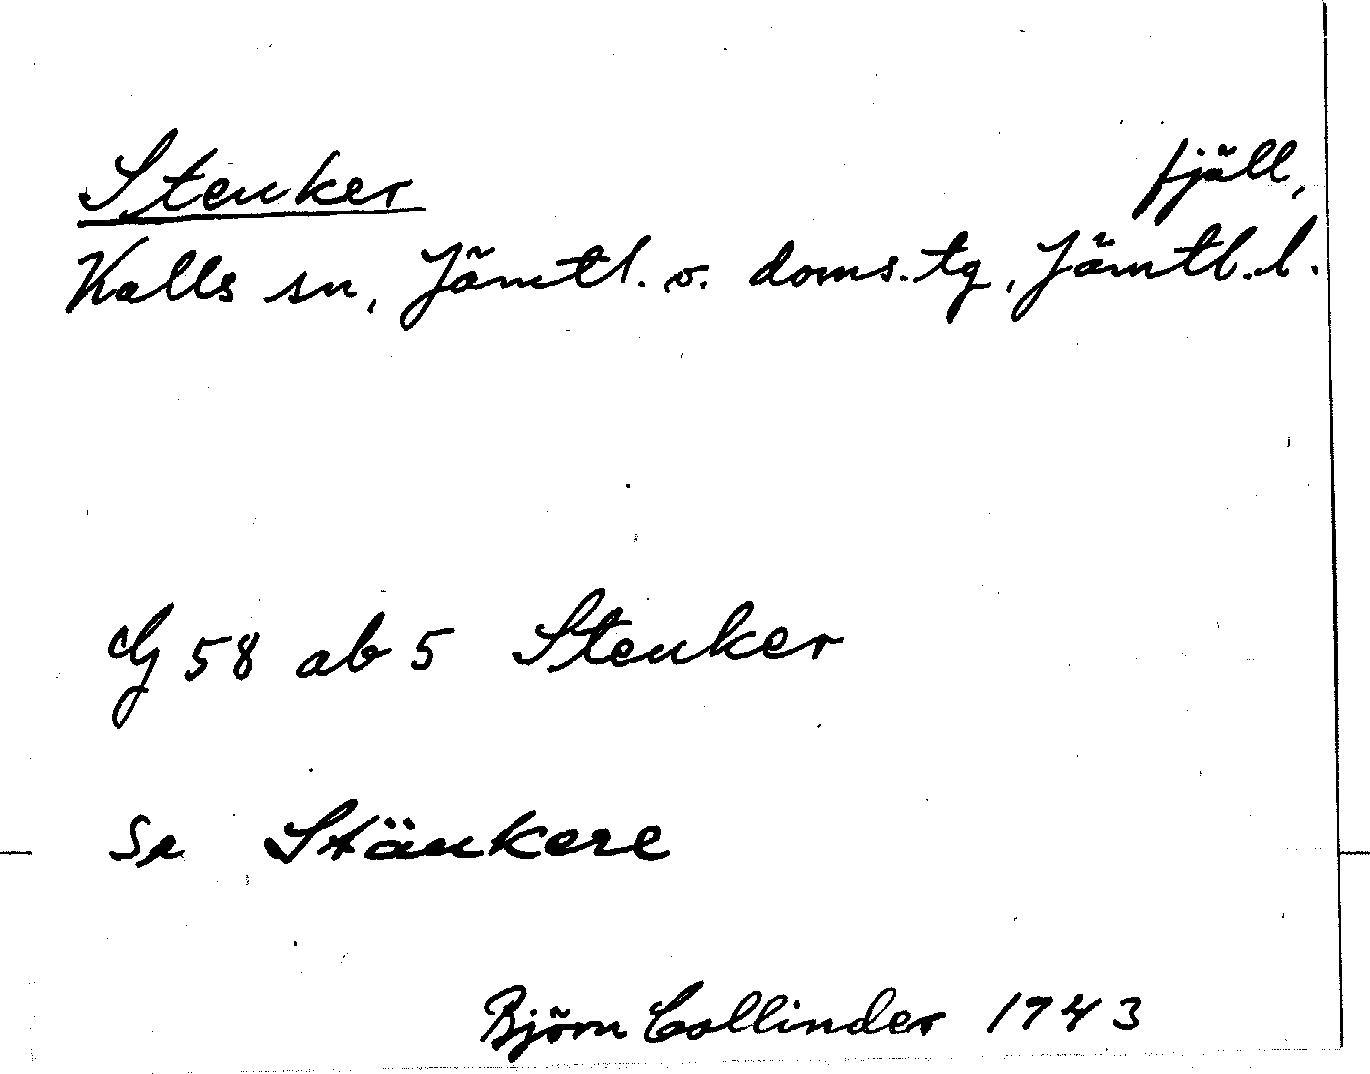 Stenker fjäll,
Kalls sn, Jämtl. v. doms. tg, Jämtl. l.
G 58 ab 5 Stenker
Se Stänkere
Björn Collinder 1943